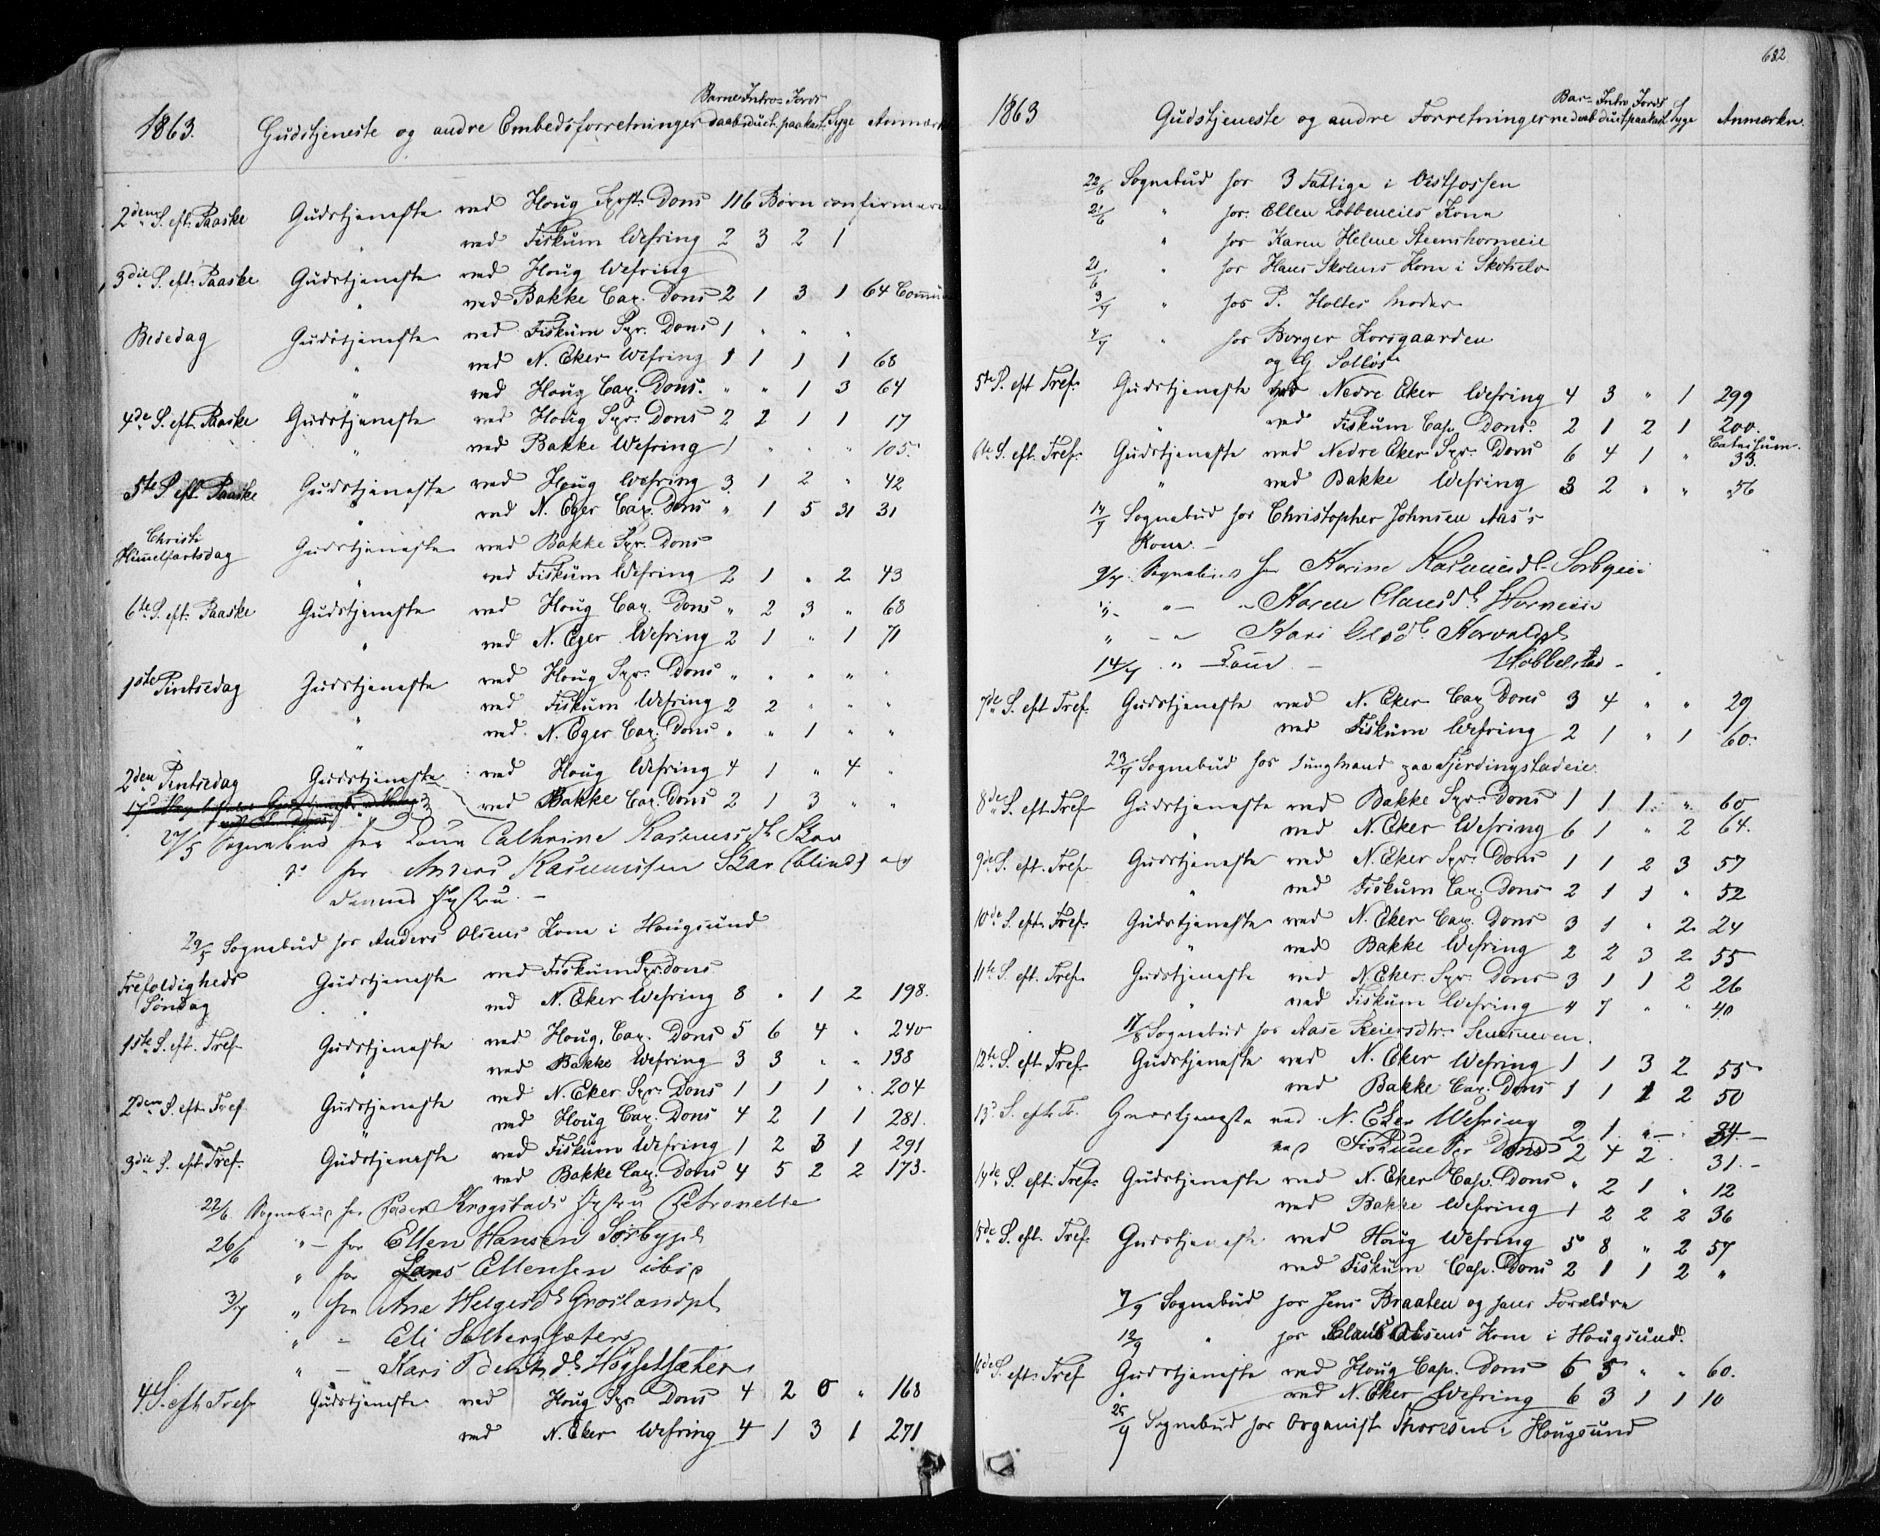 1863. Gudstjeneste og andre Embedsforretninger Barnedaab Introduct. Jordspaakast. Syge Anmærk
2den S. eft. Paaske Gudstjeneste ved Houg Sgpr. Dons 116 Børn confirmere
" ved Fiskum Wefring 2 3 2 1
3die S. eft. Paaske Gudstjeneste ved Houg Wefring
" ved Bakke Cap. Dons 2 1 3 1 64 Commun
Bededag Gudstjeneste ved Fiskum Spr. Dons 1 " " "
" ved N. Eker Wefring 1 1 1 1 68
" ved Houg Cap. Dons. " " 1 3 64
4de S. eft. Paaske Gudstjeneste ved Houg Spr. Dons 2 2 1 1 17
" ved Bakke Wefring 1 " " " 105.
5te S. eft. Paaske Gudstjeneste ved Houg Wefring 3. 1 2 " 42
" ved N. Eger Cap. Dons " 1 5 31 31
Christi Himmelfartsdag Gudstjeneste ved Bakke Spr. Dons
" ved Fiskum Wefring 2 1 " 2 43
6te S. eft. Paaske Gudstjeneste ved Houg Cap. Dons " 2 3 " 68
" ved N. Eger Wefring 2 1 " 1 71
1ste Pintsedag Gudstjeneste ved Houg Spr. Dons " " " " "
" ved Fiskum Wefring 2 2 " " "
" ved N. Eger Cap. Dons " " 1 " "
2den Pintsedag Gudstjeneste ved Houg Wefring 4 1 " 4 "
ved Bakke Cap. Dons 2 1 3 " "
27/5 Sognebud for Cathrine Rasmusdt. Skar
do for Anders Rasmussen Skar (blind) og
dennes Hustru. –
29/5 Sognebud hos Anders Olsens Kone i Hougsund
Trefoldigheds Søndag Gudstjeneste ved Fiskum Spr. Dons
" ved N. Eker Wefring 8 " 1 2 198.
1ste S. eft. Tref. Gudstjeneste ved Houg. Cap. Dons 5 6 4 " 240
" ved Bakke Wefring 3 3 " " 138
2den S. eft. Tref. Gudstjeneste ved N. Eker Spr. Dons 1 1 1 " 204
" ved Houg Cap. Dons 4 2 1 1 281.
3die S. eft. Tref. Gudstjeneste ved Fiskum Wefring 1 2 3 1 291
ved Bakke Cap. Dons 4 5 2 2 173.
22/6. Sognebud for Peder Krogstads Hustru Petronelle
26/6 " – for Ellen Hansen Sørbygd
" for Lars Ellensen ibid
3/7 " for Ane Helgesdt. Groslandpl
" – Eli Solberg Sæteren
" – Kari Bentsdt. Høgsetsæter
4. S. eft. Tref. Gudstjeneste ved Houg Spr. Dons 4 2 0 " 168
ved N. Eker Wefring 4 1 3 1 271
682
1863 Gudstjeneste og andre Forretninger Barnedaab Introduct. Jordspaakast. Syge Anmærkn.
22/6 Sognebud hos 3 Fattige i Vestfossen
21/6 " hos Ellen Løbbeneies Kone
" hos Karen Helene Steenshorneie
21/6 " hos Hans Skolens Kone i Skotselv
3/7 " hos P. Holtes Moder
4/7 " hos Borger Korsgaarden
og G Solløs
5te S. eft Tref. Gudstjeneste ved Nedre Eker Wefring 4 3 " 1 299
" ved Fiskum Cap. Dons. 2 1 2 1 200.
6te S. eft. Tref. Gudstjeneste ved Nedre Eker Spr. Dons 6 4 1 " Catechism. 33.
" ved Bakke Wefring 3 2 " " 56
14/7 Sognebud hos Christopher Johnsen Aas's
Kone. –
9/7. Sognebud for Karine Rasmusdt. Sørbyeie
" – " – Karen Clausdt. Horneie
" – " Kari Olsdt. Korvaldst
14/7 " Hobbelstad –
7de S. eft Tref. Gudstjeneste ved N. Eker Cap Dons 3 4 " " 29
ved Fiskum Wefring 2 1 " 1 60.
23/7 Sognebud hos Lungmand paa Fjerdingstadeie.
8de S. eft Tref Gudstjeneste ved Bakke Spr. Dons 1 1 1 " 60
" ved N. Eker Wefring 6 1 " 2 64.
9de S. eft. Tref. Gudstjeneste ved N. Eker Spr. Dons 1 1 2 3 57
" ved Fiskum Cap. Dons 2 1 1 " 52
10de S. eft. Tref. Gudstjeneste ved N. Eker Cap. Dons 3 1 " 2 24
" ved Bakke Wefring 2 2 3 2 55
11te S. eft. Tref. Gudstjeneste ved N. Eker. Spr. Dons 3 1 1 2 26
" ved Fiskum Wefring " 7 " " 40
17/8 Sognebud hos Aase Reiersdtr.
12te S. eft. Tref. Gudstjeneste ved N. Eker Wefring 1 1 3 2 55
ved Bakke Cap. Dons 1 1 1 2 50
13. S. eft. Tr. Gudstjeneste ved N. Eker Wefring 2 1 " – "
ved Fiskum Spr Dons 2 4 2 . 31. –
14de S. eft. Tref. Gudstjeneste ved N. Eker Cap. Dons " 2 1 " 12
ved Bakke Wefring 1 2 2 2 36
5de S. eft. Tref. Gudstjeneste ved Houg Wefring 5 8 " 2 57
ved Fiskum Cap. Dons 2 1 1 2 "
7/9 Sognebud hos Jens Braaten og hans Forældre
12/9 " hos Claus Olsens Kone i Hougsund.
16de S. eft. Tref Gudstjeneste ved Houg Cap. Dons 6 5 " " 60.
ved N. Eker Wefring 6 3 1 1 10
25/9 Sognebud hos Organist Thoresen i Hougsund